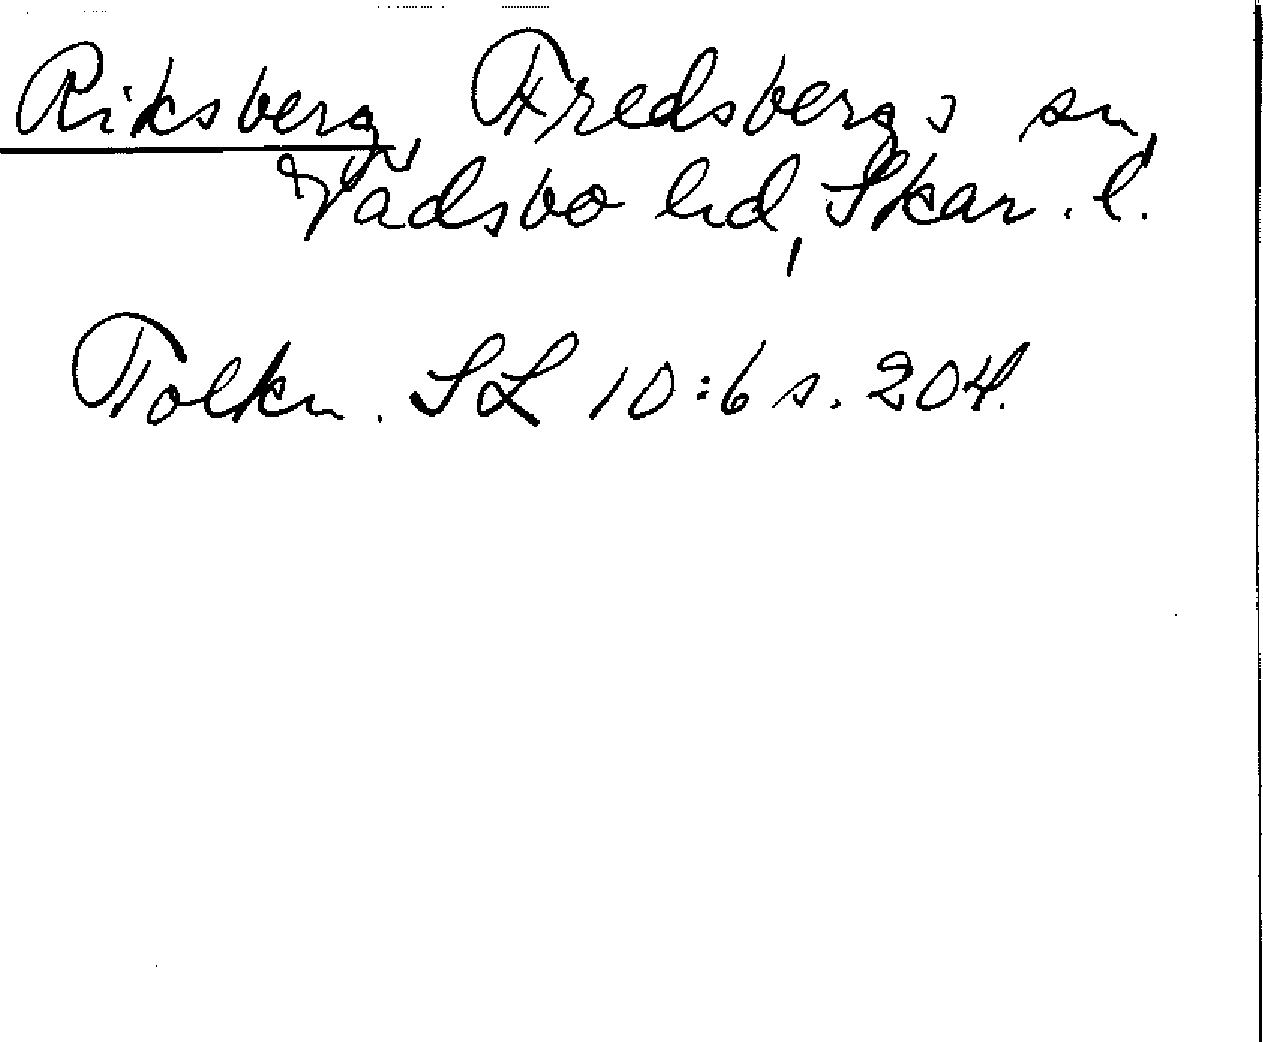 Riksberg, Fredsbergs sn,
Vadsbo hd, Skar. l.
Tolkn. SL 10:6 s. 204.